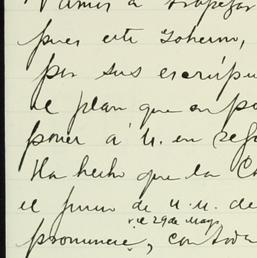 Vamos a tropezar
pues este Gobierno,
por sus escrúpu
el plan que
poner á U. en
Ha hecho que la
el de U. U. de
v. el 29 de Mayo
pronuncie, con toda